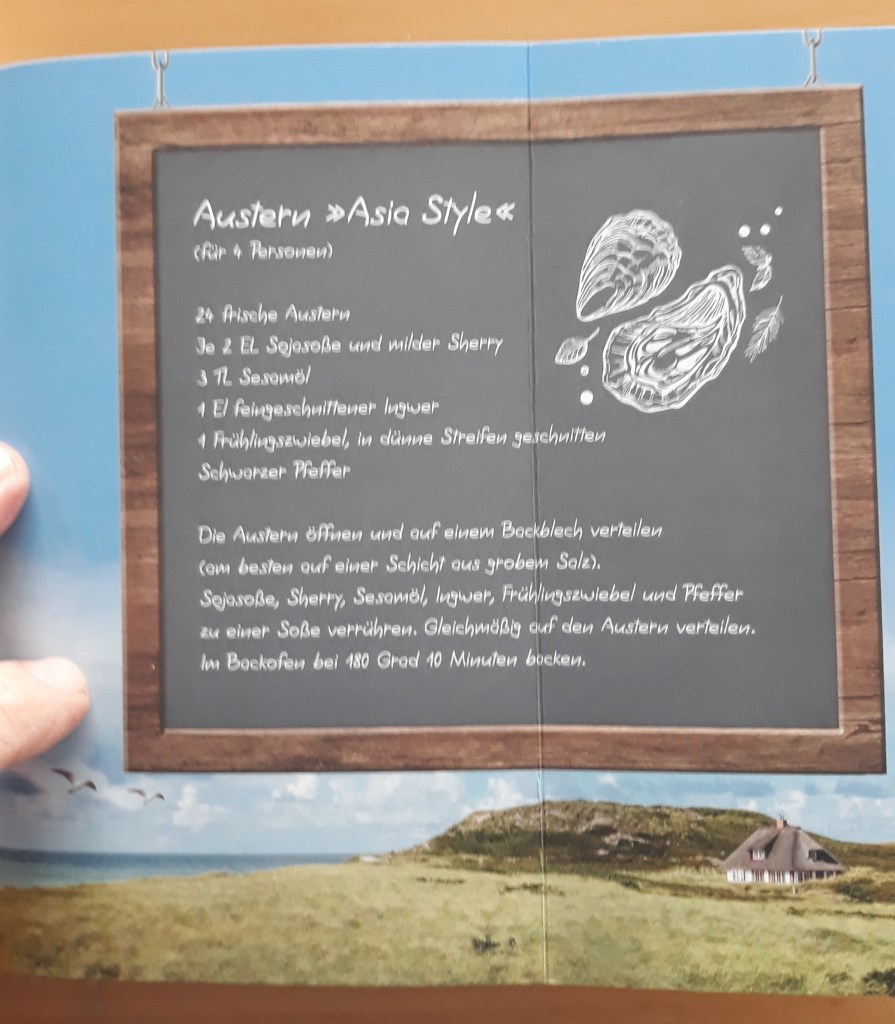 Austern »Asia Style«
(für 4 Personen)
24 frische Austern
Je 2 EL Sojasoße und milder Sherry
3 TL Sesamöl
1 El feingeschnittener Ingwer
1 Frühlingszwiebel, in dünne Streifen geschnitten
Schwarzer Pfeffer
Die Austern öffnen und auf einem Backblech verteilen
(am besten auf einer Schicht aus grobem Salz).
Sojasoße, Sherry, Sesamöl, Ingwer, Frühlingszwiebel und Pfeffer
zu einer Soße verrühren. Gleichmäßig auf den Austern verteilen.
Im Backofen bei 180 Grad 10 Minuten backen.